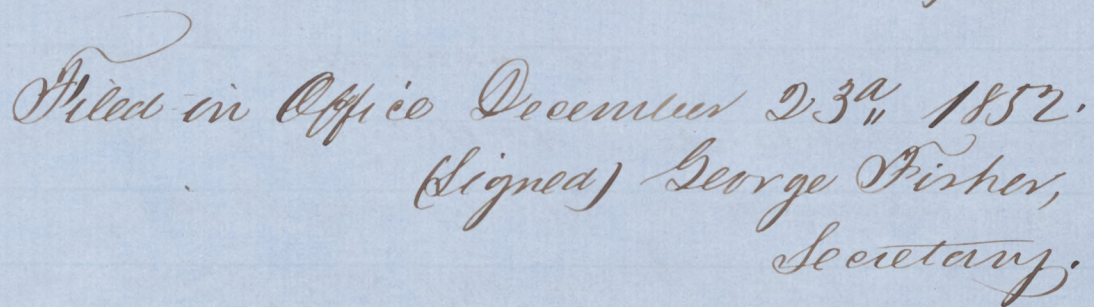 Filed in Office December 23d 1852.
(Signed) George Fisher,
Secretary.